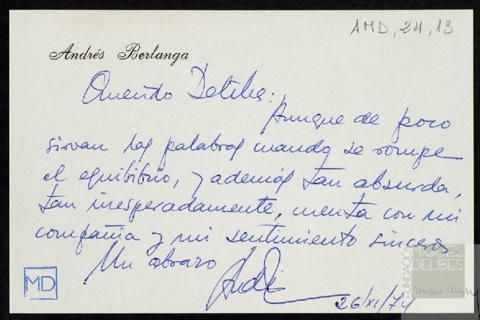 AMD, 24, 13
Andrés Berlanga
Querido Delibes:
Aunque de poco
sirvan las palabras cuando se rompe
el equilibrio, y además tan absurda,
tan inesperadamente, cuenta con mi
compañía y mi sentimiento sincero
Un abrazo
26/XI/74
MD
FUNDACIÓN
MIGUEL
DELIBES